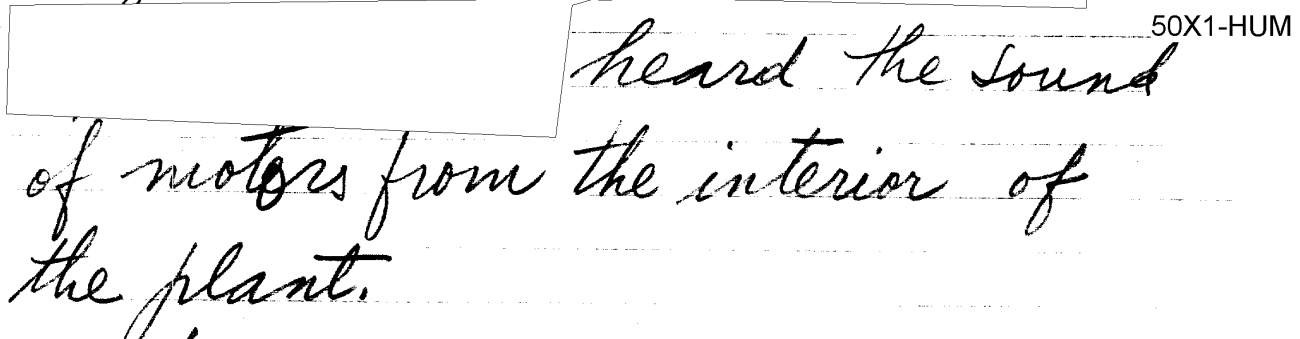 50X1-HUM
heard the sound
of motors from the interior of
the plant.